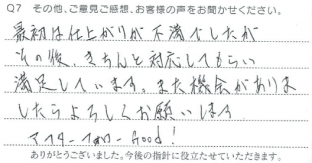 Q7 その他、ご意見ご感想、お客様の声をお聞かせください。
最初は仕上がりが不満でしたが
その後、きちんと対応してもらい
満足しています。また機会がありま
したらよろしくお願いします
Good!
ありがとうございました。今後の指針に役立たせていただきます。